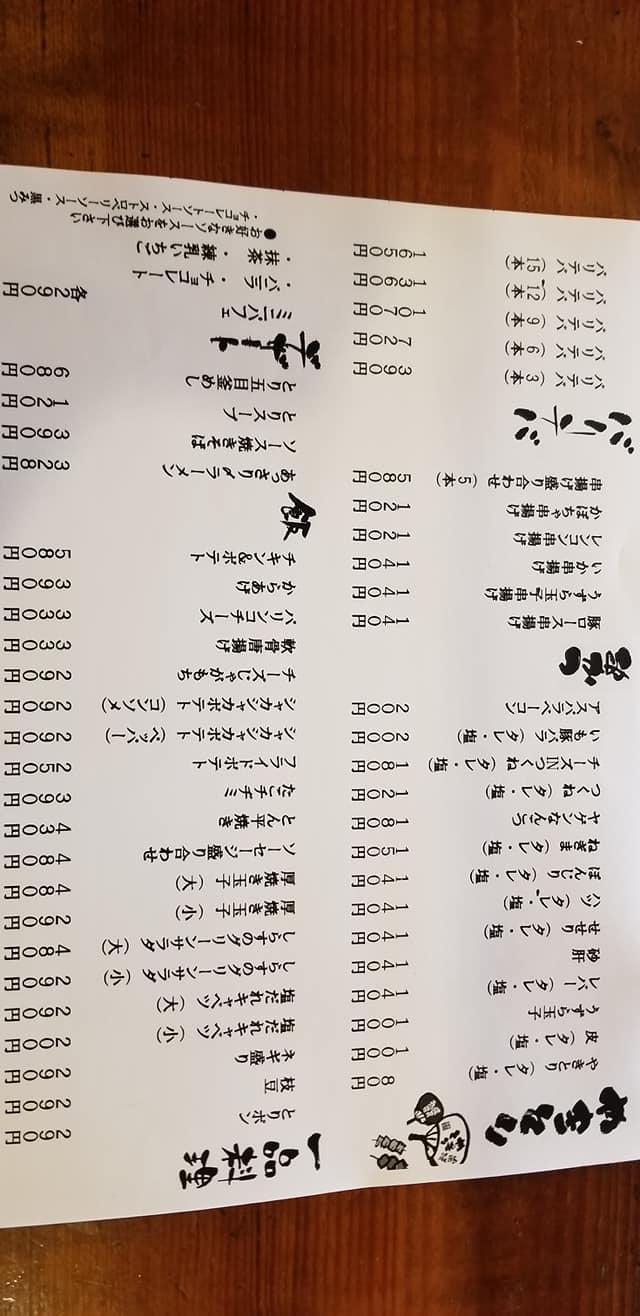 やきとり
やきとり（タレ・塩） 80円
皮（タレ・塩） 100円
うずら玉子 100円
レバー（タレ・塩） 140円
砂肝 140円
せせり（タレ・塩） 140円
ハツ（タレ・塩） 140円
ぼんじり（タレ・塩） 140円
ねぎま（タレ・塩） 150円
ヤゲンなんこつ 180円
つくね（タレ・塩） 120円
チーズINつくね（タレ・塩） 180円
いも豚バラ（タレ・塩） 200円
アスパラベーコン 200円
豚ロース串揚げ 140円
うずら玉子串揚げ 140円
いか串揚げ 140円
レンコン串揚げ 120円
かぼちゃ串揚げ 120円
串揚げ盛り合わせ（5本） 580円
バリテバ
バリテバ（3本） 390円
バリテバ（6本） 720円
バリテバ（9本） 1070円
バリテバ（12本） 1360円
バリテバ（15本） 1650円
一品料理
とりポン 290円
枝豆 290円
ネギ盛り 290円
塩だれキャベツ（小） 200円
塩だれキャベツ（大） 290円
しらすのグリーンサラダ（小） 290円
しらすのグリーンサラダ（大） 480円
厚焼き玉子（小） 290円
厚焼き玉子（大） 480円
ソーセージ盛り合わせ 480円
とん平焼き 430円
たこチヂミ 390円
フライドポテト 250円
シャカシャカポテト（ペッパー） 290円
シャカシャカポテト（コンソメ） 290円
チーズじゃがもち 290円
軟骨唐揚げ 330円
バリンコチーズ 330円
からあげ 390円
チキン&ポテト 580円
飯
あっさり〆ラーメン 328円
ソース焼きそば 390円
とりスープ 120円
とり五目釜めし 680円
デザート
ミニパフェ 各290円
・バニラ ・チョコレート
・抹茶 ・練乳いちご
●お好きなソースをお選び下さい
・チョコレートソース・ストロベリーソース・黒みつ